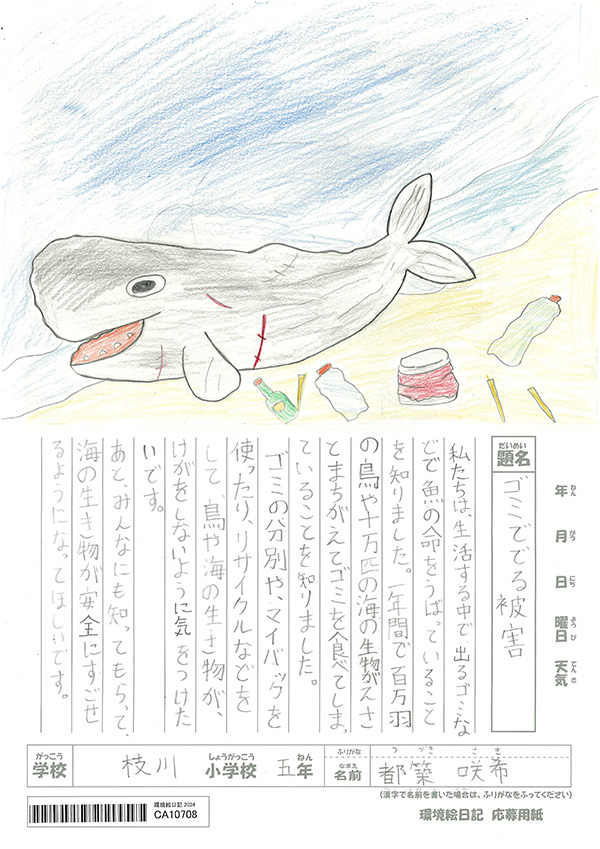 年 月 日 曜日 天気
ねん がつ にち ようび てんき
だいめい
題名
ゴミででる被害
私たちは、生活する中で出るゴミな
どで魚の命をうばっていること
を知りました。一年間で百万羽
の鳥や十万匹の海の生物がえさ
とまちがえてゴミを食べてしまっ
ていることを知りました。
ゴミの分別や、マイバックを
使ったり、リサイクルなどを
して、鳥や海の生き物が、
けがをしないように気をつけた
いです。
あと、みんなにも知ってもらって、
海の生き物が安全にすごせ
るようになってほしいです。
がっこう しょうがっこう ねん ふりがな つづき さき
学校 枝川 小学校 五年 なまえ 名前 都築 咲希
(漢字で名前を書いた場合は、ふりがなをふってください)
環境絵日記 2024
CA10708
環境絵日記 応募用紙